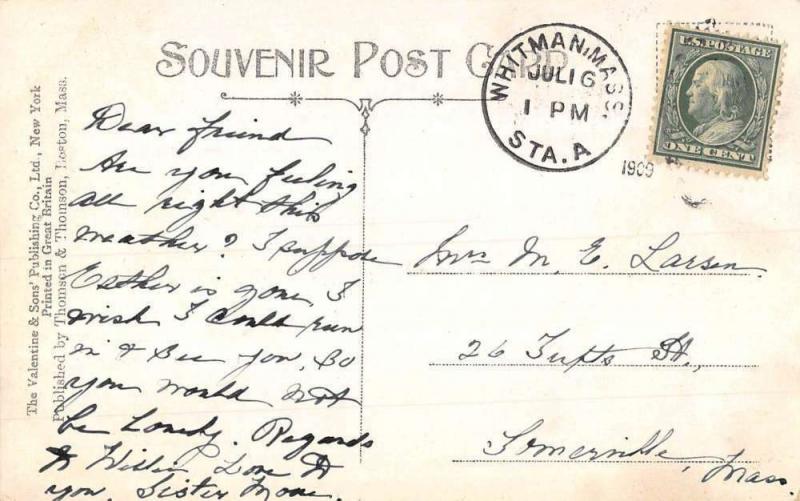 SOUVENIR POST CARD
WHITMAN, MASS.
JUL 16
1 PM
STA. A
1909
U.S. POSTAGE
ONE CENT
The Valentine & Sons' Publishing Co., Ltd., New York
Printed in Great Britain
Published by Thomson & Thomson, Boston, Mass.
Dear friend
Are you feeling
all right this
weather? I suppose
Esther is gone, I
wish I could run
in & see you, so
you would not
be lonely. Regards
to Love to
you, Sister
Mrs M. E. Larsen.
26 Tufts St.,
Somerville,
Mass